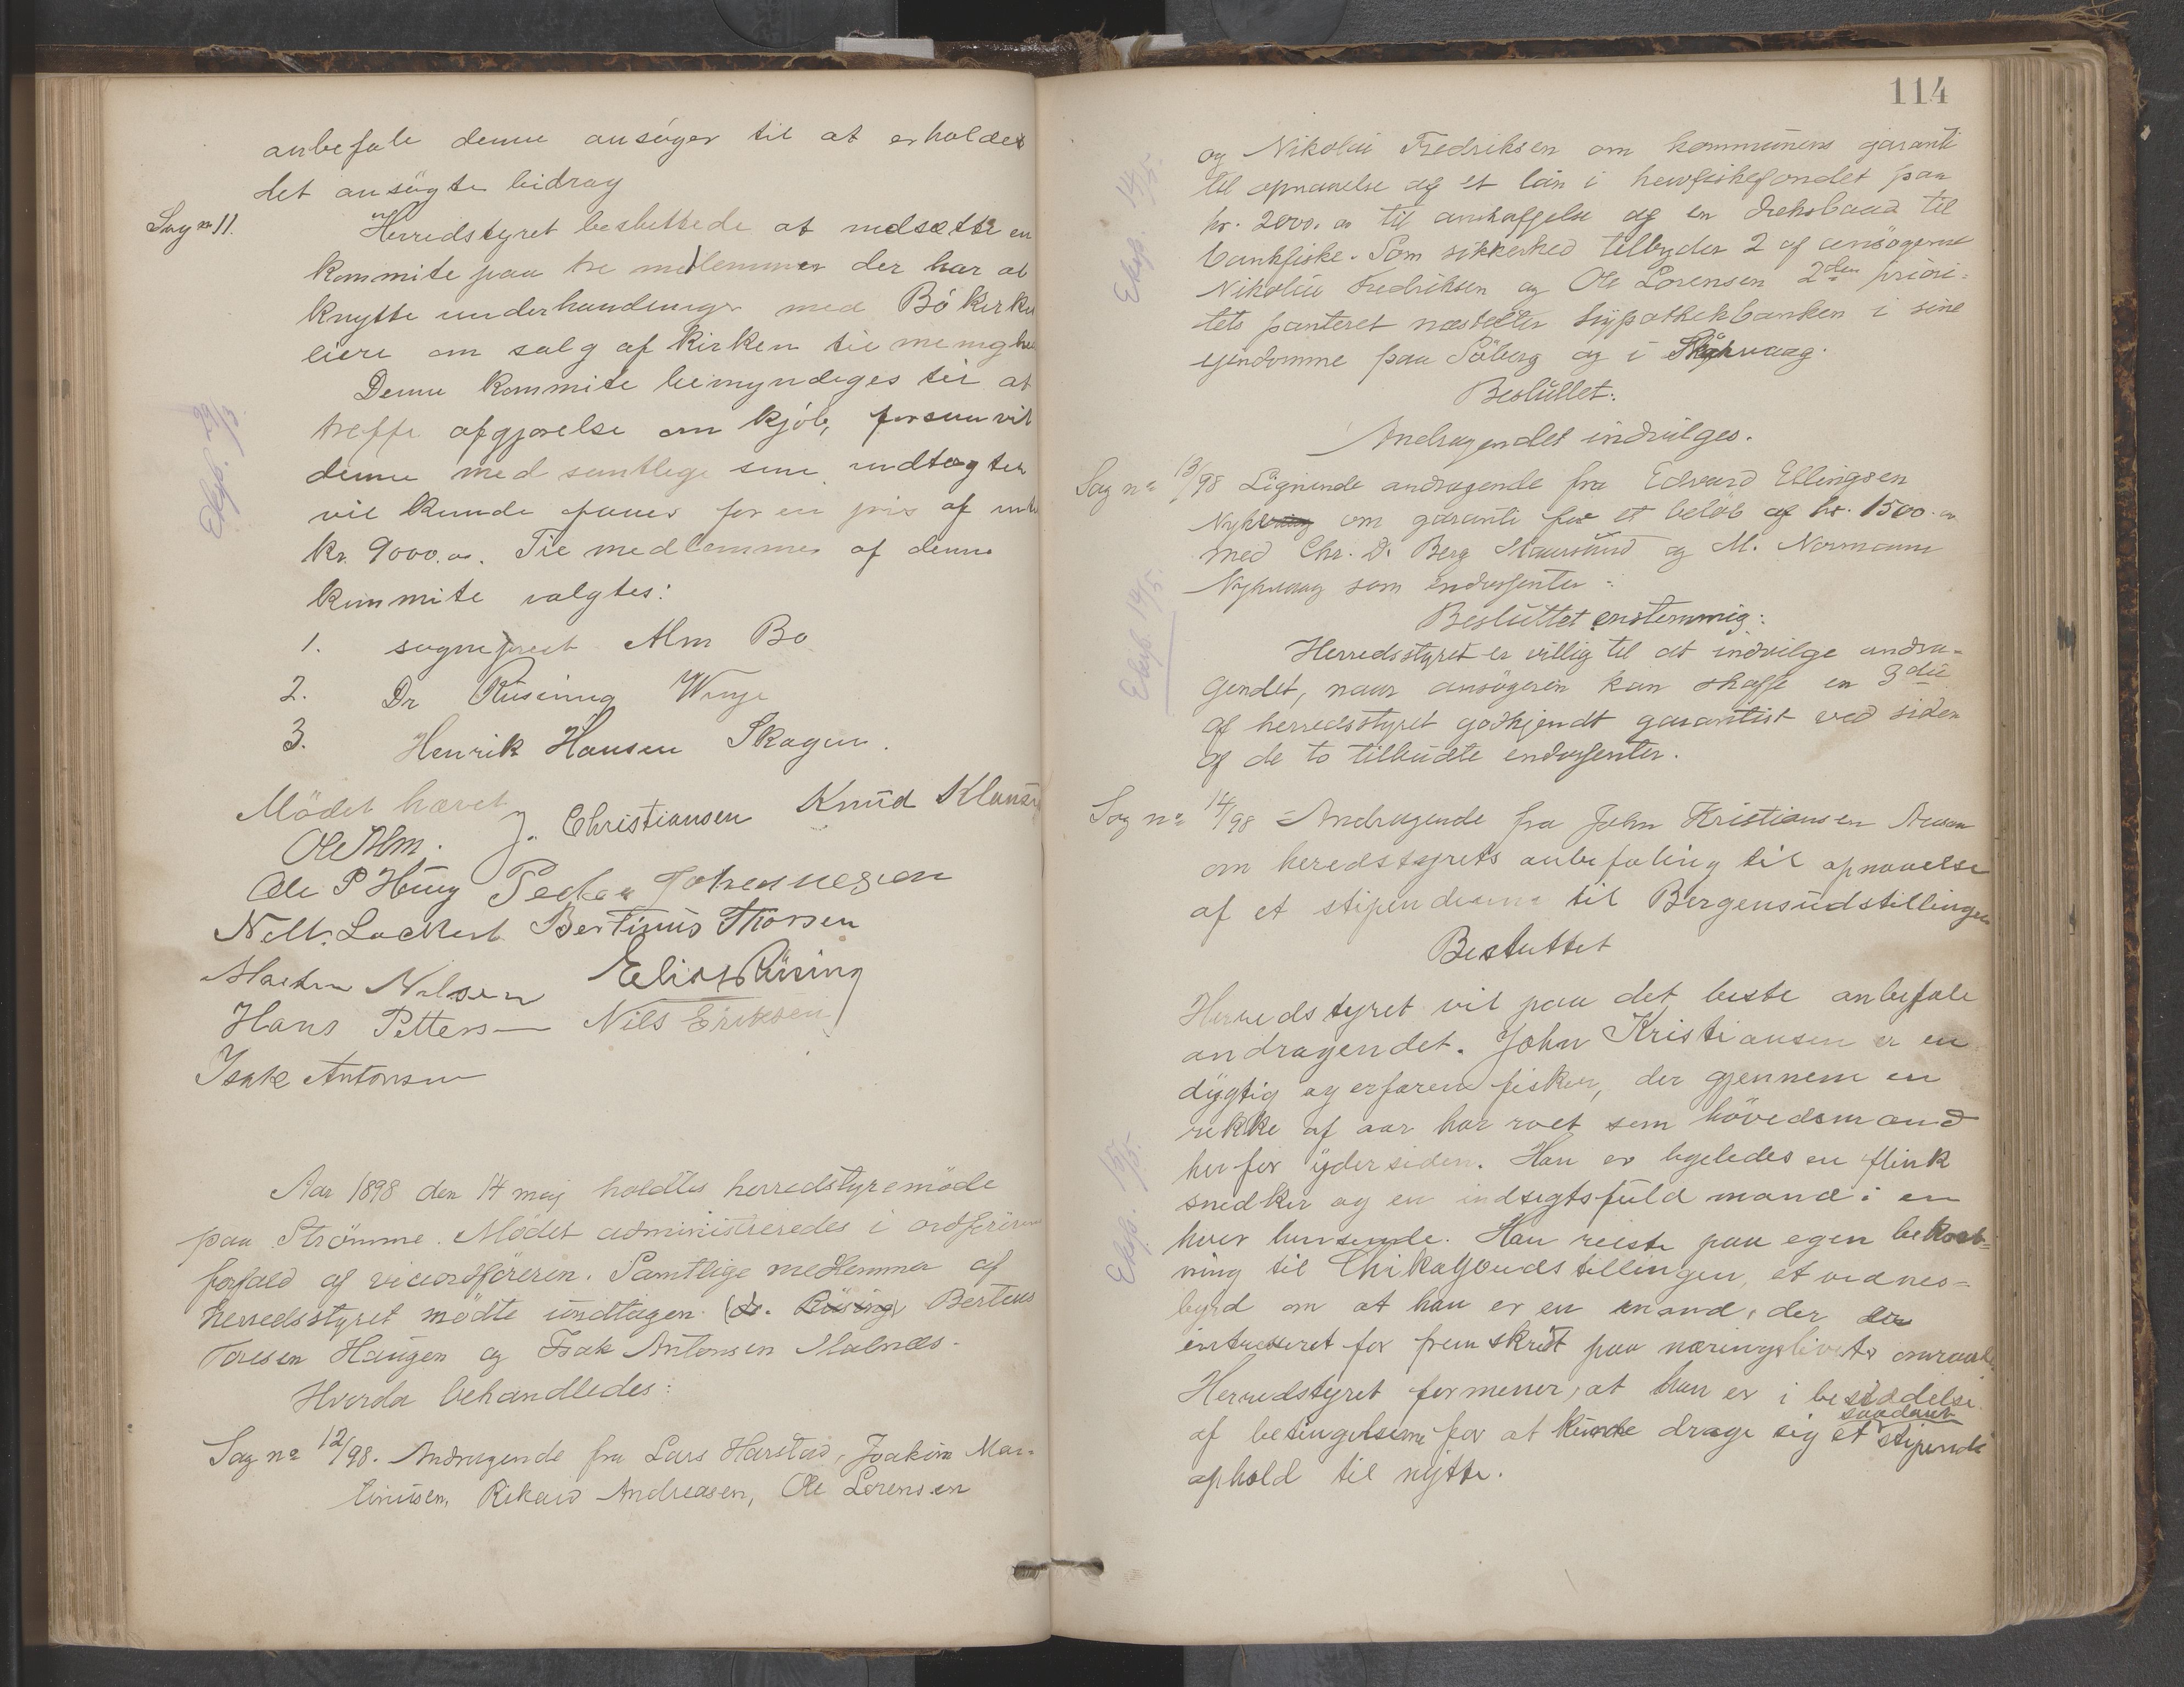 anbefale denne ansøger til at erholdes
det ansøgte bidrag
Sag no 11.
Herredstyret besluttede at nedsætte en
kommite paa tre medlemmer der har at
knytte underhandlinger med Bö Kirke
eiere om salg af Kirken til menighe
Denne kommite bemyndiges til at
treffe afgjørelse om kjöb, forsaavidt
denne med samtlige sine indtægter
vil kunde faaes for en pris af
kr. 9000.00. Til medlemmer af denne
kommite valgtes:
Eksp. 29/3.
1. sogneprest Alm Bø
2. Dr Rüsing Vinje
3. Henrik Hansen Skagen.
Mödet hævet
Ole Alm. J. Christiansen Knud Klaus
Ole P Haug Peder Johannesen
Lockert Bertinus Thorsen
Martin Nilsen Elias Rüsing
Hans Petters Nils Eriksen
Isak Antonsen
Aar 1898 den 14 maj holdtes herredstyremöde
paa Strömme. Mödet administreredes i ordförerens
forfald af viceordföreren. Samtlige medlemmer af
herredsstyret mödte undtagen (dr. Rüsing) Berteus
Toresen Haugen og Isak Antonsen Malnæs.
Hvorda behandledes:
Sag no 12/98. Andragende fra Lars Harstad, Joakim Mar-
tinusen, Rikard Andreasen, Ole Lorensen
114
og Nikolai Fredriksen om kommunens garanti
til opnaaelse af et lån i havfiskefondet paa
kr. 2000.00 til anskaffelse af en dæksbaad til
bankfiske. Som sikkerhed tilbyder 2 af ansøgerne
Nikolai Fredriksen og Ole Lorensen 2den priori-
tets panteret næstefter hypothekbanken i sine
ejendomme paa Söberg og i
Eksp. 14/5.
Besluttet:
Andragendet indvilges.
Sag no 13/98 Lignende andragende fra Edvard Ellingsen
Nykvaag om garanti for et belöb af kr. 1500.00
med Chr. D. Berg og M. Normann
Nykvaag som endossenter:
Besluttet enstemmig:
Herredsstyret er villig til at indvilge andra-
gendet, naar ansøgeren kan skaffe en 3die
af herredsstyret godkjendt garantist ved siden
af de to tilbudte endossenter.
Eksp. 14/5.
Sag no 14/98 Andragende fra John Kristiansen
om heredstyrets anbefaling til opnaaelse
af et stipendium til Bergensudstillingen
Besluttet
Herredstyret vil paa det beste anbefale
andragendet. John Kristiansen er en
dygtig og erfaren fisker, der gjennem en
rekke af aar har roet som hövedsmand
her for ydersiden. Han er ligeledes en flink
snedker og en indsigtsfuld mand i en
hver henseende. Han reiste paa egen bekost-
ning til Chikagoudstillingen, et vidnes-
byrd om at han er en mand, der er
intresseret for fremskridt paa næringslivets omraade
Herredstyret formener, at han er i besiddelse
af betingelserne for at kunde drage sig et saadant stipendi
ophold til nytte.
Eksp. 15/5.